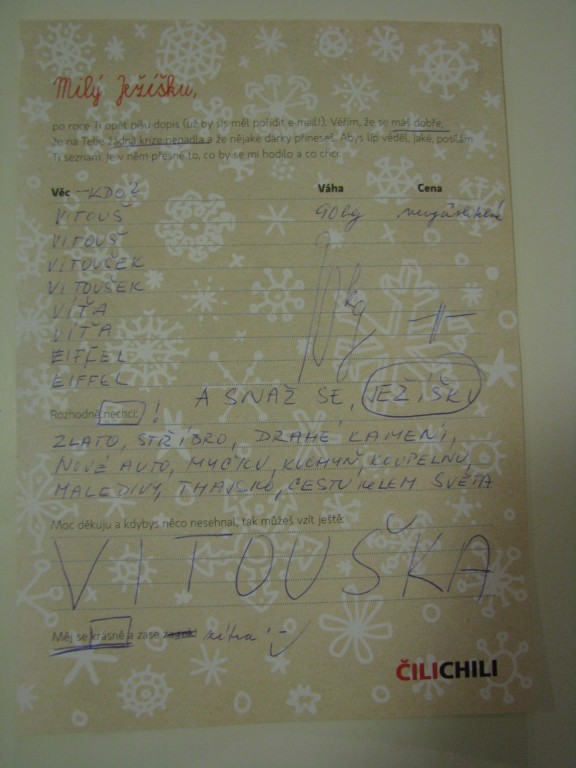 Milý Ježíšku,
po roce Ti opět píšu dopis (už by sis měl pořídit e-mail!). Věřím, že se máš dobře,
že na Tebe žádná krize nepadla a že nějaké dárky přineseš. Abys líp věděl, jaké, posílám
Ti seznam. Je v něm přesně to, co by se mi hodilo a co chci.
Věc - KDO? Váha Cena
VITOUŠ 90 kg
VITOUŠ
VITOUŠEK
VITOUŠEK
VÍŤA
VÍŤA
EIFFEL
EIFFEL
90 kg
A SNAŽ SE, JEŽÍŠKU
Rozhodně nechci: !
ZLATO, STŘÍBRO, DRAHÉ KAMENÍ,
NOVÉ AUTO, MYČKU, KUCHYŇ, KOUPELNU,
MALEDIVY, THAJSKO, CESTU KOLEM SVĚTA
Moc děkuju a kdybys něco nesehnal, tak můžeš vzít ještě:
VITOUŠKA
Měj se krásně a zase zítra!
ČILICHILI